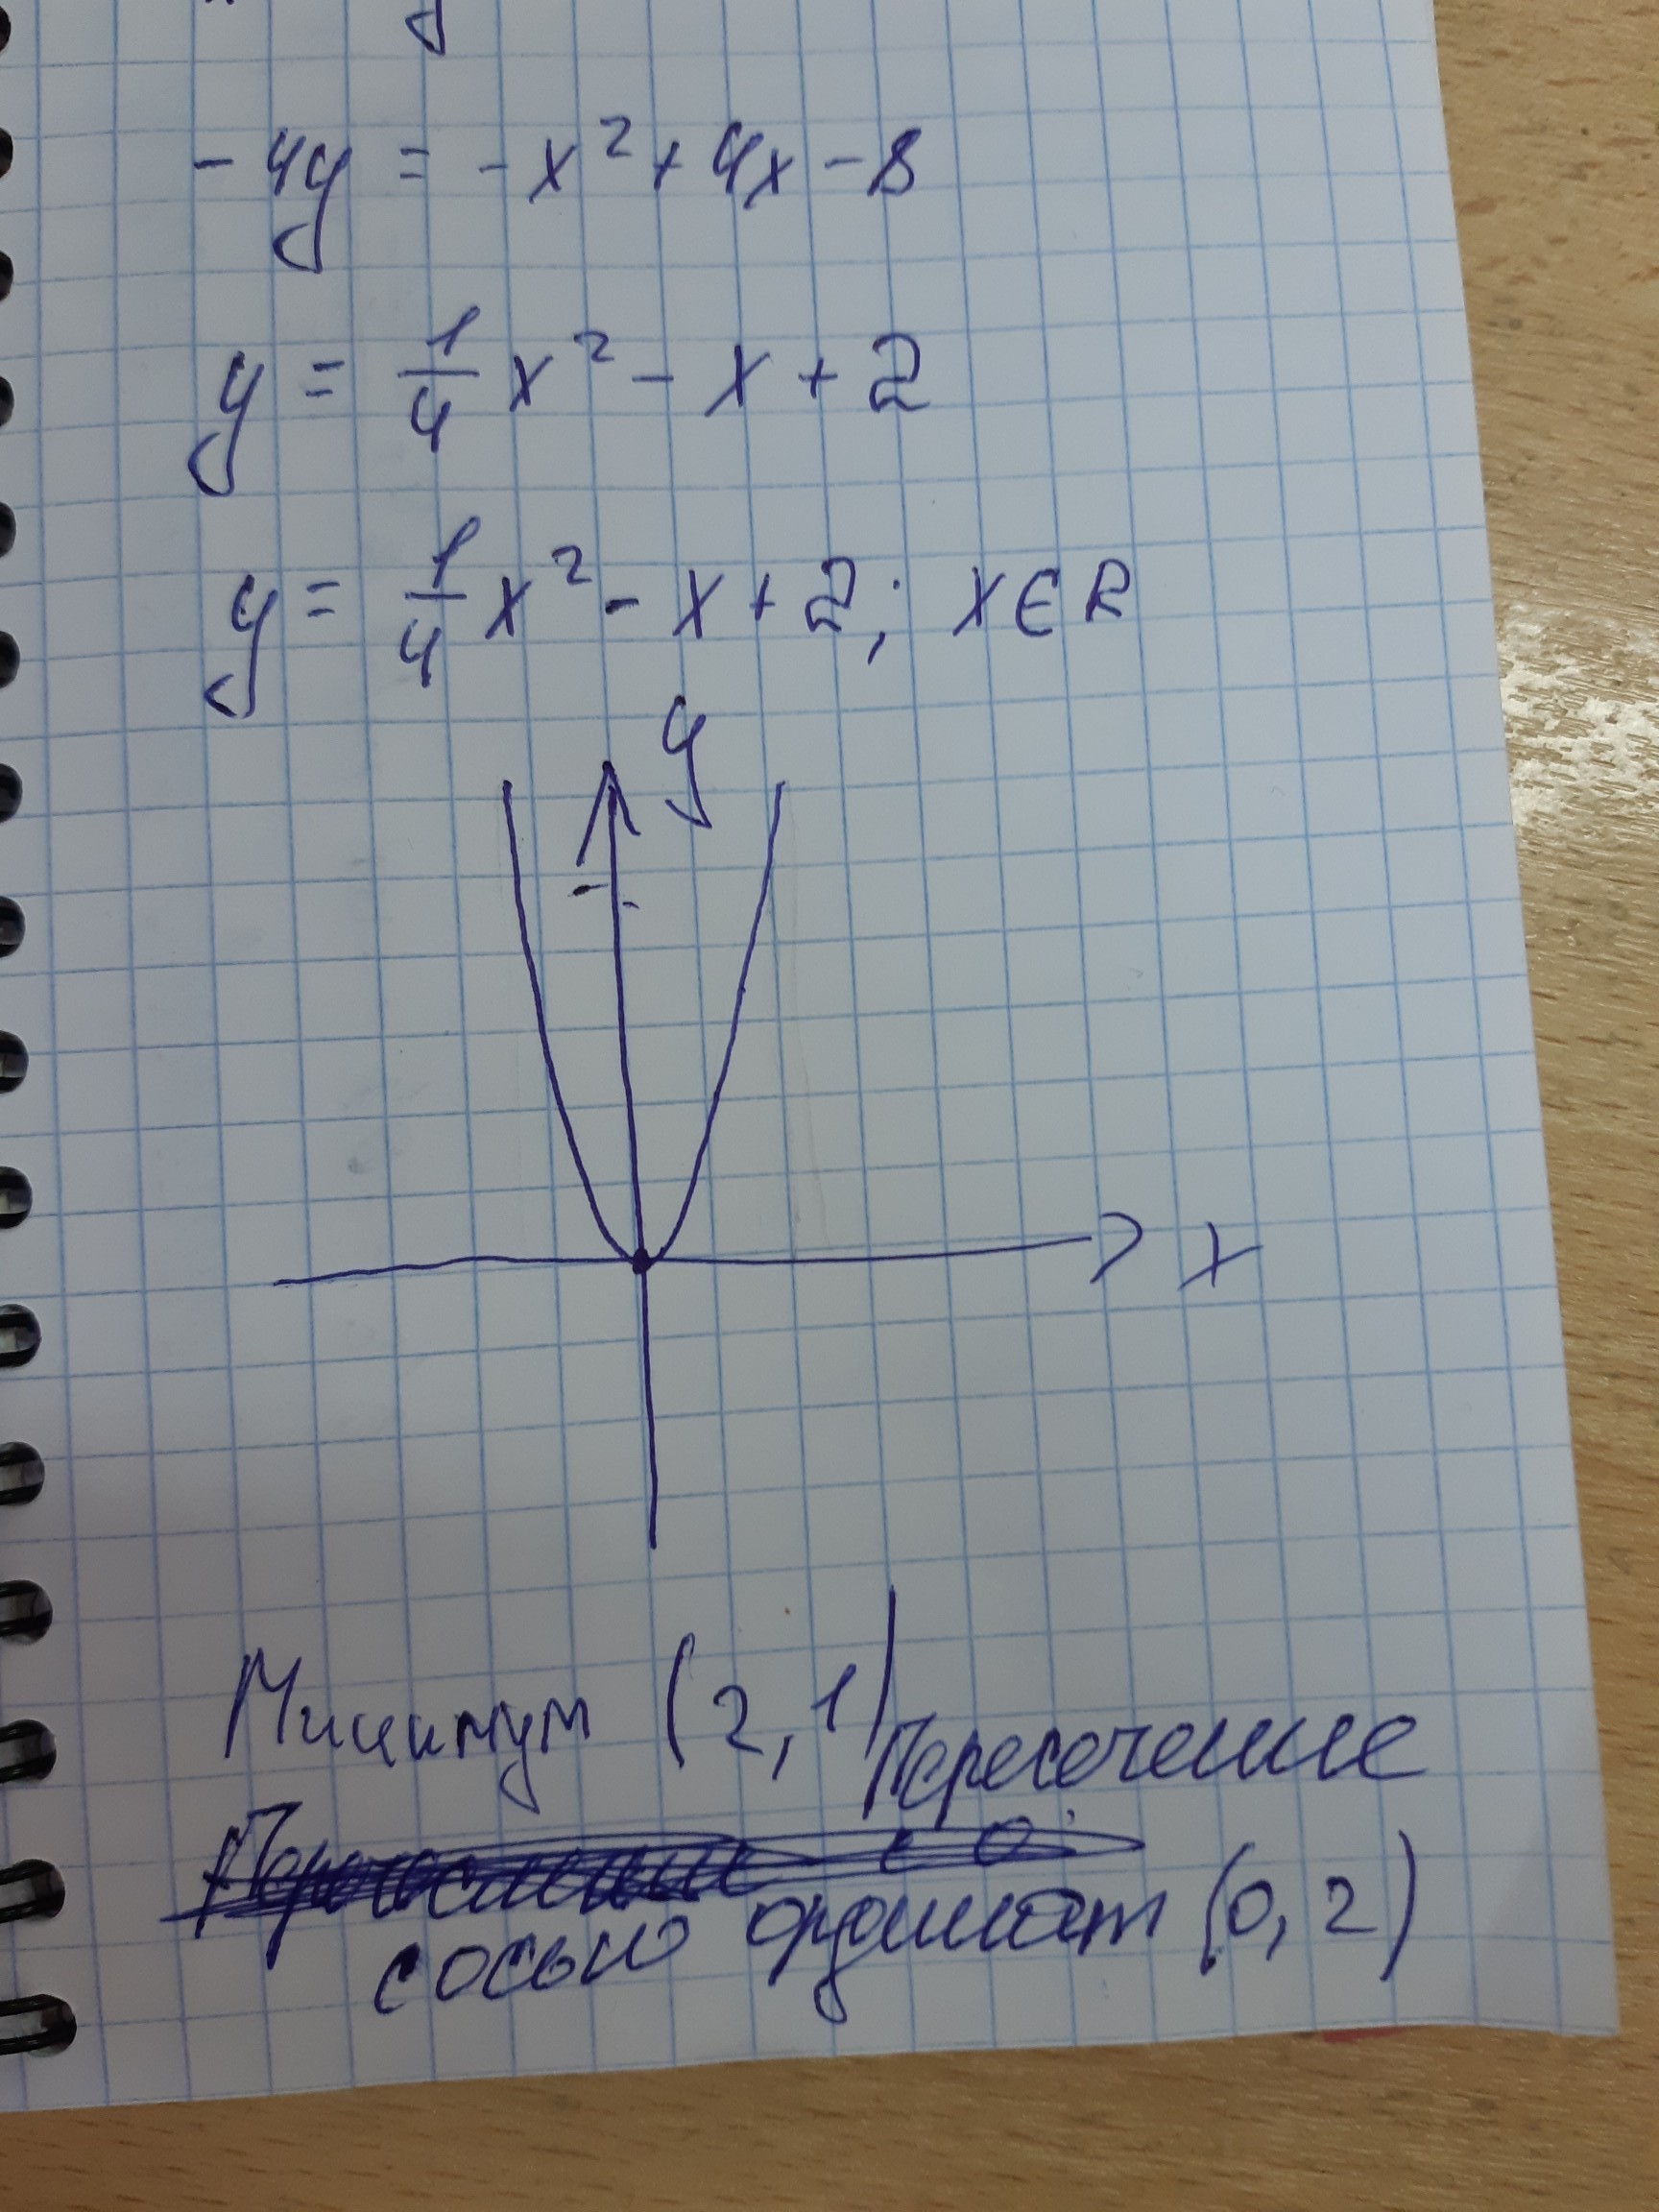 - 4y = - x² + 4x - 8
y = 1/4 x² - x + 2
y = 1/4 x² - x + 2; x ∈ R
y
x
Минимум (2, 1) Пересечение
с осью ординат (0, 2)